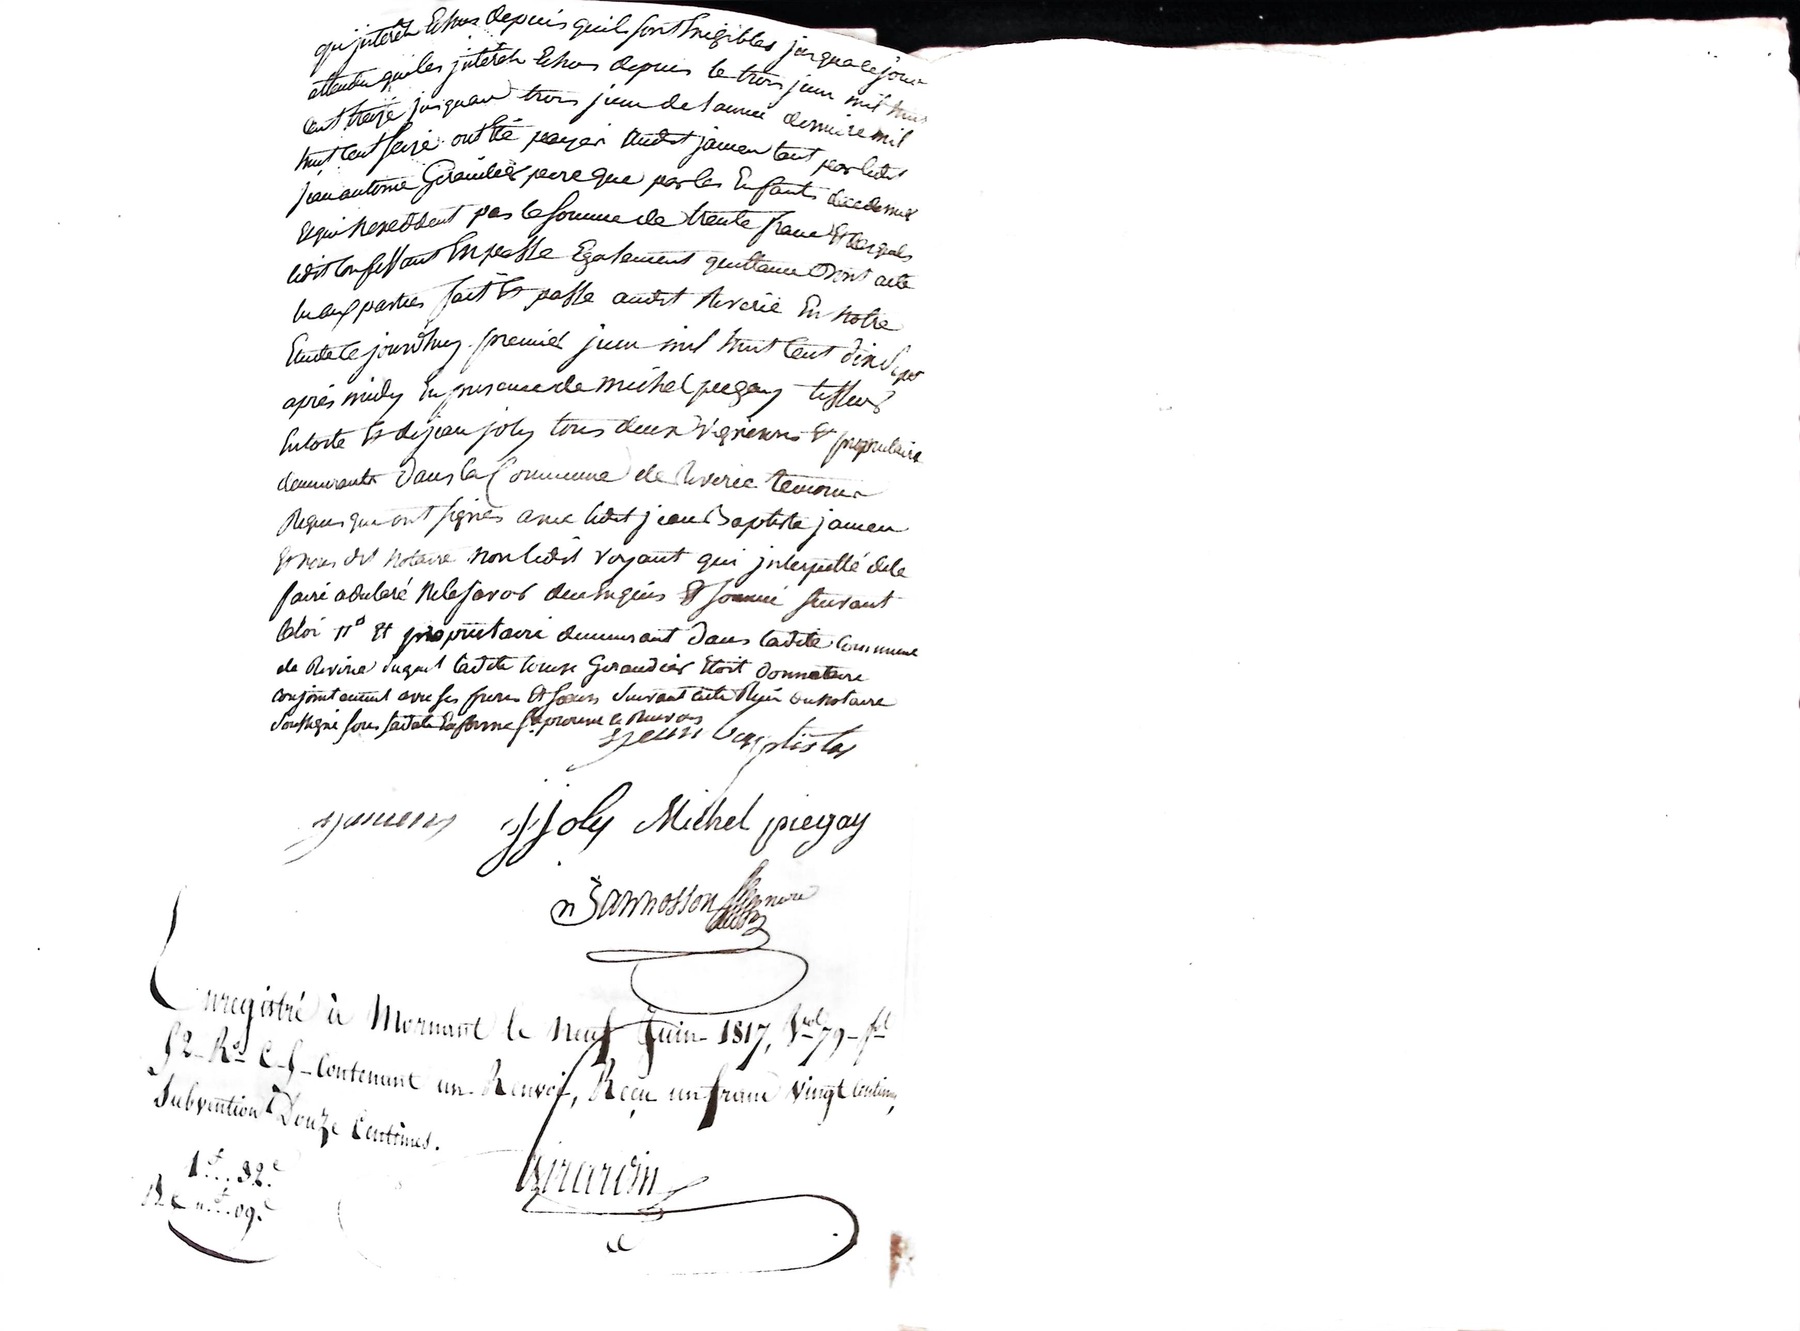 qui interêts Echus depuis quils sont Exigibles jusqua ce jour
attendu que les jnterêts Echus depuis le trois juin mil huit
cent treize jusquau trois juin de lannée derniere mil
huit cent seize ont été payés audit jamen tant par ledit
jean antoine Giraudier pere que par les Enfants de ce dernier
Et qui nexcedent pas la somme de trente franc Et desquels
ledit Confessant En passe Egalement quittance Dont acte
lu aux parties fait Et passé audit Riverie En notre
Etude Ce jourdhuy premier juin mil huit Cent dix Sept
après midy En presence de michel piegay tisseur
En toile Et de jean joly tous deux Et propriétaire
demeurants Dans la Commune de Riverie temoins
Requis qui ont signés avec ledit jean Baptiste jamen
Et nous dit notaire non ledit voyant qui jnterpellé de le
faire a declaré ne le savoir de ce Enquis Et sommé suivant
la loi Et propriétaire demeurant Dans ladite Commune
de Riverie ladite louise Giraudier Etoit Donnataire
conjointement avec ses freres Et sœurs Suivant acte Reçu du notaire
Soussigné sous sa date En forme approuvé le Renvois
jean baptiste
jamen jjoly Michel piegay
Bannosson
Enregistré à Mornant le neuf Juin 1817, Vol. 79 - fol
52 - R.º C. 5 - Contenant un Renvoi, Reçu un franc vingt Centim,
Subvention Douze Centimes.
1f.. 32.c
09.c
Girardin